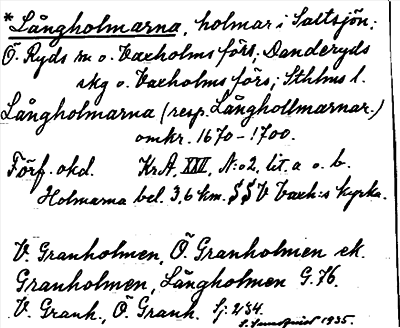 *Långholmarna, holmar i Saltsjön;
Ö. Ryds sn o. Vaxholms förs. Danderyds
skg o. Vaxholms förs; Sthlms l.
Långholmarna (resp. Långhollmarnar.)
omkr. 1670-1700.
Förf. okd. KrA, XXVI, N:o 2, lit. a o. b.
Holmarna bel. 3,6 km. SSV Vaxh:s kyrka.
V. Granholmen, Ö. Granholmen ek.
Granholmen, Långholmen G. 76.
V. Granh., Ö. Granh. Sj. 2/34.
1935.